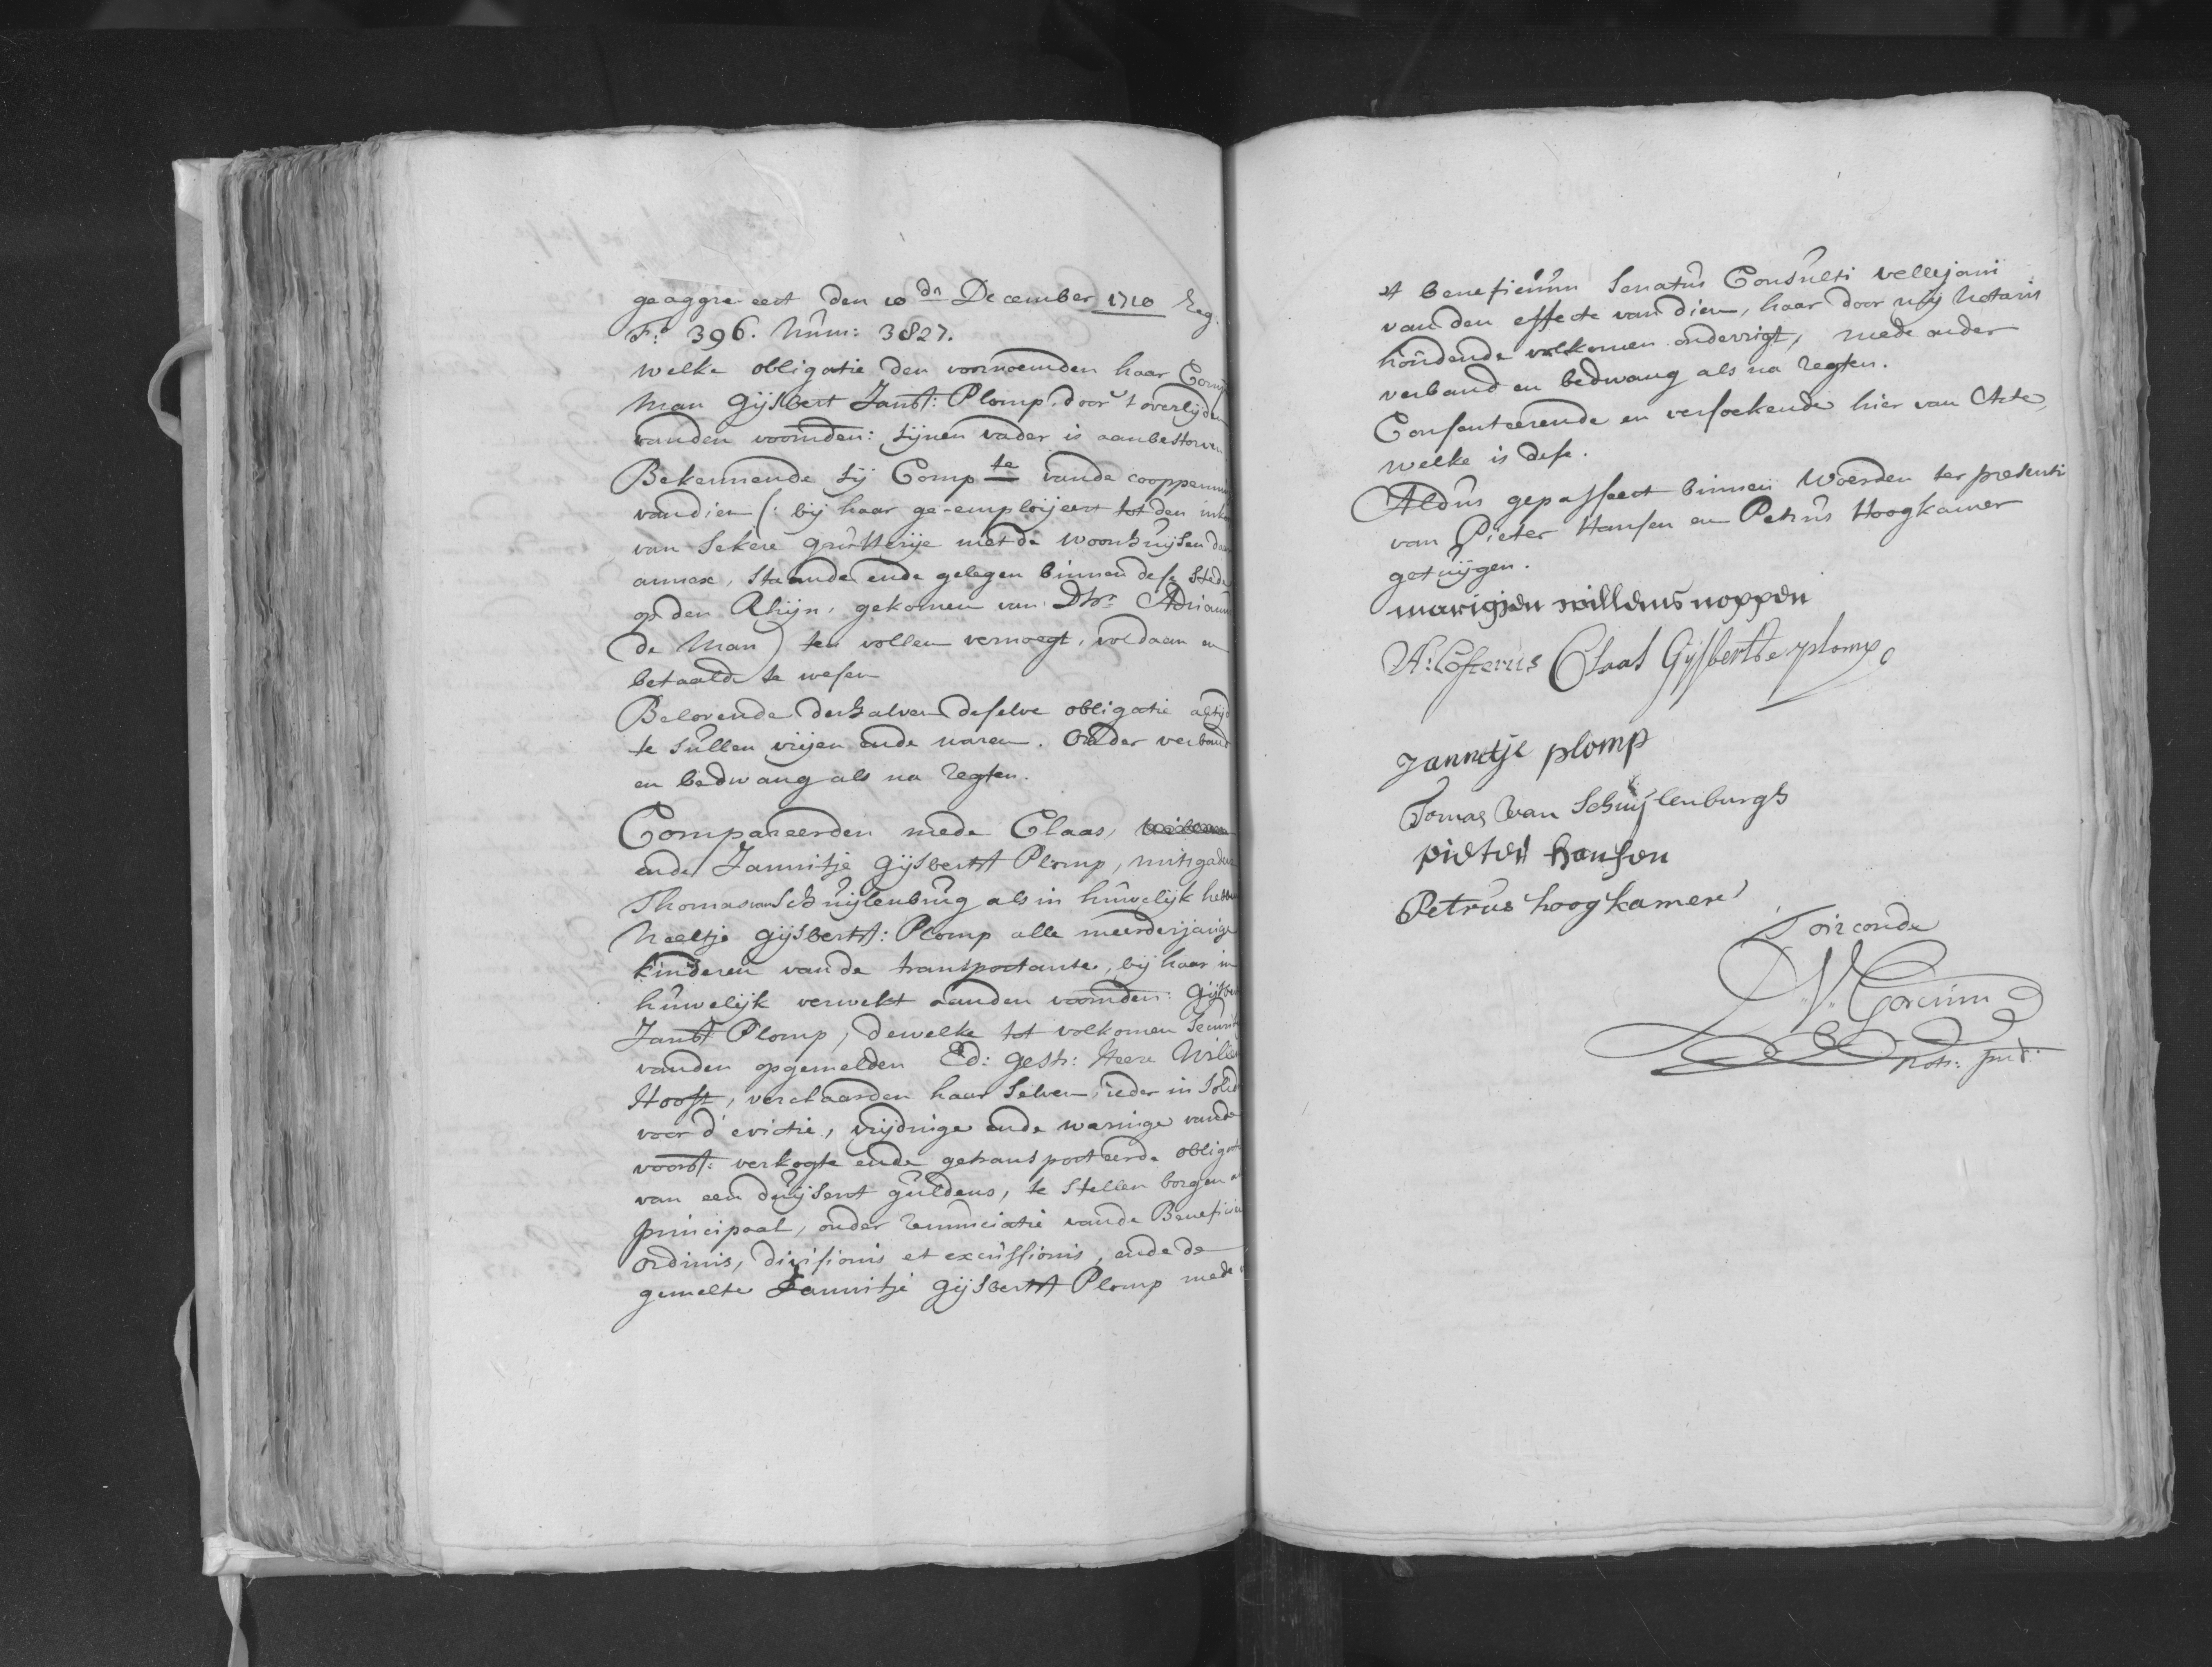 geaggreeert den 10 dn December 1710 Reg.
Fo: 396. Num: 3827.
welke obligatie den voornoemden haar Comp
Man Gijsbert Jansz: Plomp door 't overlijden
vanden voornden: sijnen vader is aanbestorven
Bekennende sij Compte vande cooppenn
van dien (: bij haar ge-emploijeert tot den
van sekere grutterije met de woonhuijsen
annex, staande ende gelegen binnen dese Stede
op den Rhijn, gekomen van Dhr Adrianus
de Man) ten vollen vernoegt, voldaan en
betaald te wesen
Belovende derhalven deselve obligatie altijd
te sullen vrijen ende waren. Onder verband
en bedwang als na regten.
Compareerden mede Claas,
ende Jannitje Gijsberts Plomp, mitsgaders
Thomas van Schuijlenburg als in huwelijk hebbende
Neeltje Gijsberts: Plomp alle meerderjarige
kinderen vande transportante, bij haar in
huwelijk verwekt aanden voornden: Gijsbert
Jansz Plomp, dewelke tot volkomen Securit
vanden opgemelden Ed: Gestr: Heere Willem
Hooft, verclaarden haar selven, ieder in Solid
voor d'evictie, vrijdinge ende waringe vande
voorsz: verkogte ende getransporteerde obligatie
van een duijsent guldens, te stellen borgen als
principaal, onder renunciatie vande Beneficien
ordinis, divisionis et excussionis, ende de
gemelte Jannitje Gijsberts Plomp mede
et beneficium Senatus Consulti vellejani
van den effecte van dien, haar door mij Notaris
houdende volkomen onderrigt, mede onder
verband en bedwang als na regten.
Consenteerende en versoekende hier van Acte,
welke is dese.
Aldus gepasseert binnen Woerden ter presenti
van Pieter Hansen en Petrus Hoogkamer
getuijgen.
marigjen willems noppen
A: Costerus Claas Gijsbertse plomp
Jannetje plomp
Tomas van Schuijlenburgh
pieter hansen
Petrus hoogkamer
Toirconde
Nots: pub: